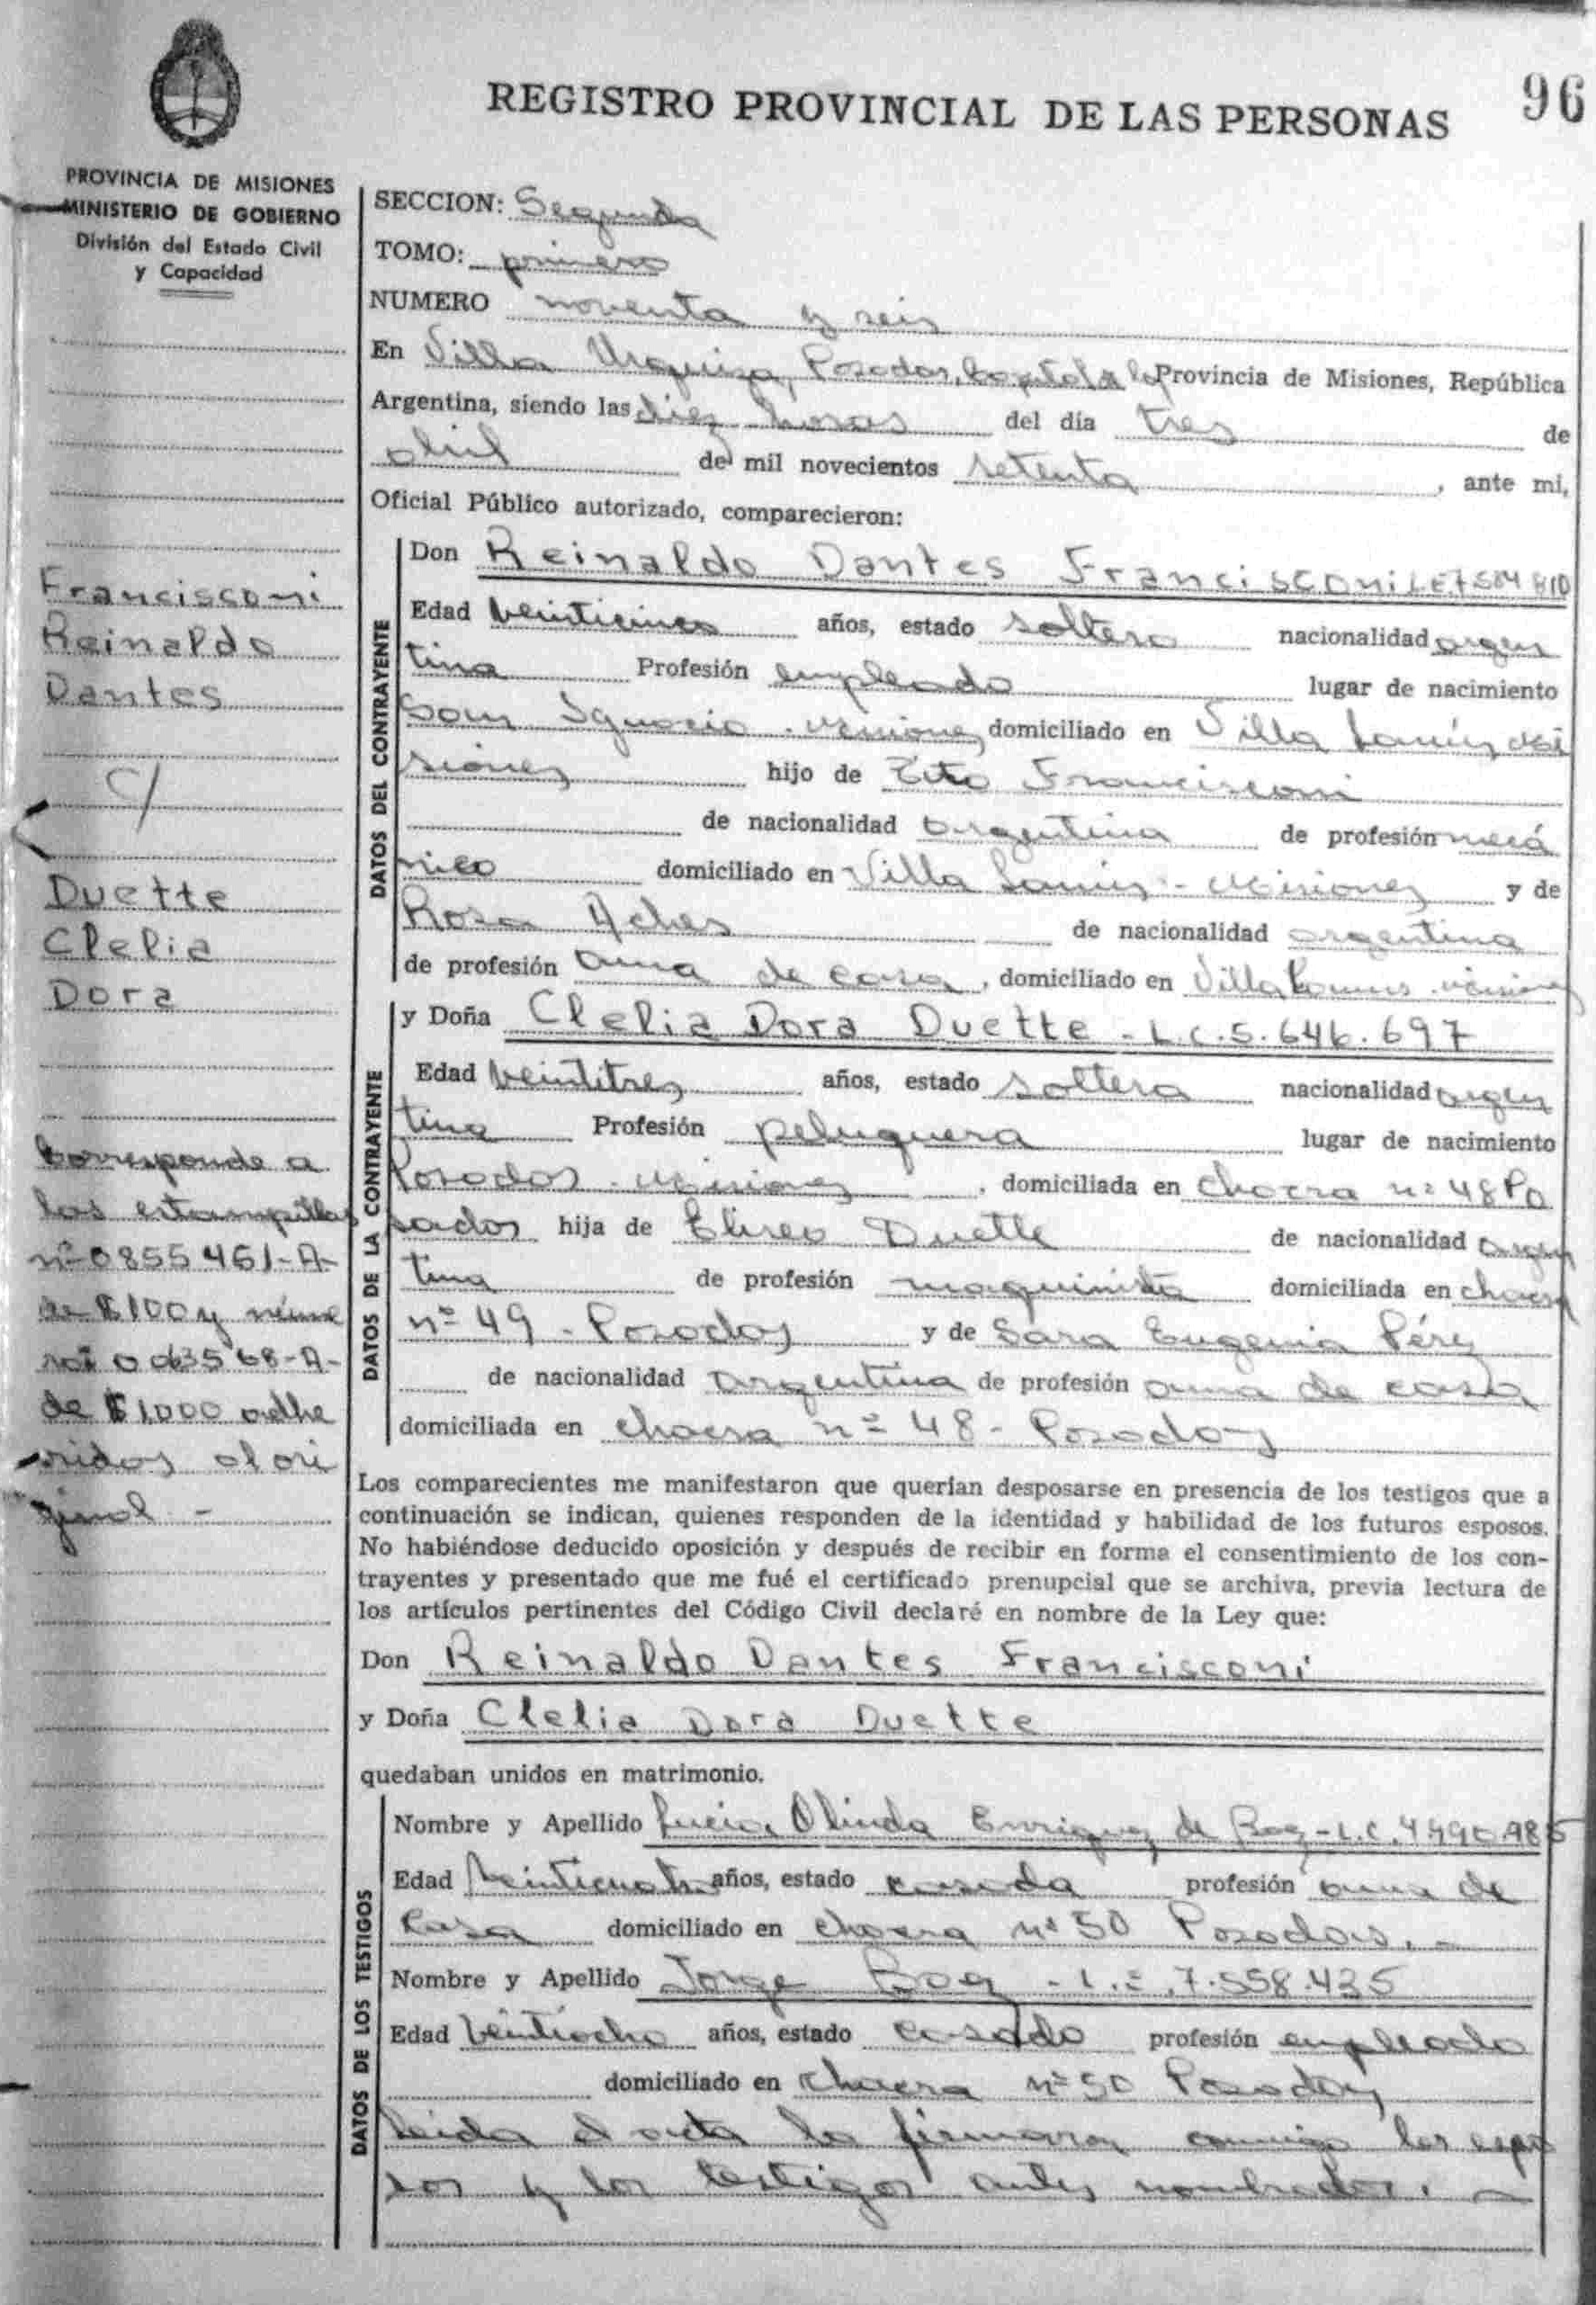 REGISTRO PROVINCIAL DE LAS PERSONAS
96
PROVINCIA DE MISIONES
MINISTERIO DE GOBIERNO
División del Estado Civil
y Capacidad
Francisconi
Reinaldo
Dantes
c/
Duette
Clelia
Dora
Corresponde a
las estampillas
nº 0855461-A-
de $100 y núme
de $1.000 adhe
ridas al ori
ginal -
SECCION: Segunda
TOMO: primero
NUMERO noventa y seis
En Villa Urquiza, Posadas, Capital de la Provincia de Misiones, República
Argentina, siendo las diez horas del día tres de
abril de mil novecientos setenta, ante mi,
Oficial Público autorizado, comparecieron:
DATOS DEL CONTRAYENTE
Don Reinaldo Dantes Francisconi L.E.
Edad veinticinco años, estado soltero nacionalidad argen
tina Profesión empleado lugar de nacimiento
San Ignacio - Misiones domiciliado en Villa Lanús Mi
siones hijo de Tito Francisconi
de nacionalidad argentina de profesión mecá
nico domiciliado en Villa Lanús - Misiones y de
Rosa Aches de nacionalidad argentina
de profesión ama de casa, domiciliado en Villa Lanus Misiones
DATOS DE LA CONTRAYENTE
y Doña Clelia Dora Duette - L.C. 5.646.697
Edad veintitres años, estado soltera nacionalidad argen
tina Profesión peluquera lugar de nacimiento
Posadas - Misiones, domiciliada en chacra nº 48 Po
sadas hija de Eliseo Duette de nacionalidad argen
tina de profesión maquinista domiciliada en chacra
nº 49 - Posadas y de Sara Eugenia Pérez
de nacionalidad argentina de profesión ama de casa
domiciliada en chacra nº 48 - Posadas
Los comparecientes me manifestaron que querían desposarse en presencia de los testigos que a
continuación se indican, quienes responden de la identidad y habilidad de los futuros esposos.
No habiéndose deducido oposición y después de recibir en forma el consentimiento de los con-
trayentes y presentado que me fué el certificado prenupcial que se archiva, previa lectura de
los artículos pertinentes del Código Civil declaré en nombre de la Ley que:
Don Reinaldo Dantes Francisconi
y Doña Clelia Dora Duette
quedaban unidos en matrimonio.
DATOS DE LOS TESTIGOS
Nombre y Apellido Lucia Olinda Enriquez de - L.C.
Edad veinticuatro años, estado casada profesión ama de
casa domiciliado en chacra nº 50 Posadas. -
Nombre y Apellido Jorge - L.E. 7.558.435
Edad veintiocho años, estado casado profesión empleado
domiciliado en chacra nº 50 Posadas
Leida el acta la firmaron conmigo los espo
sos y los testigos antes nombrados. -